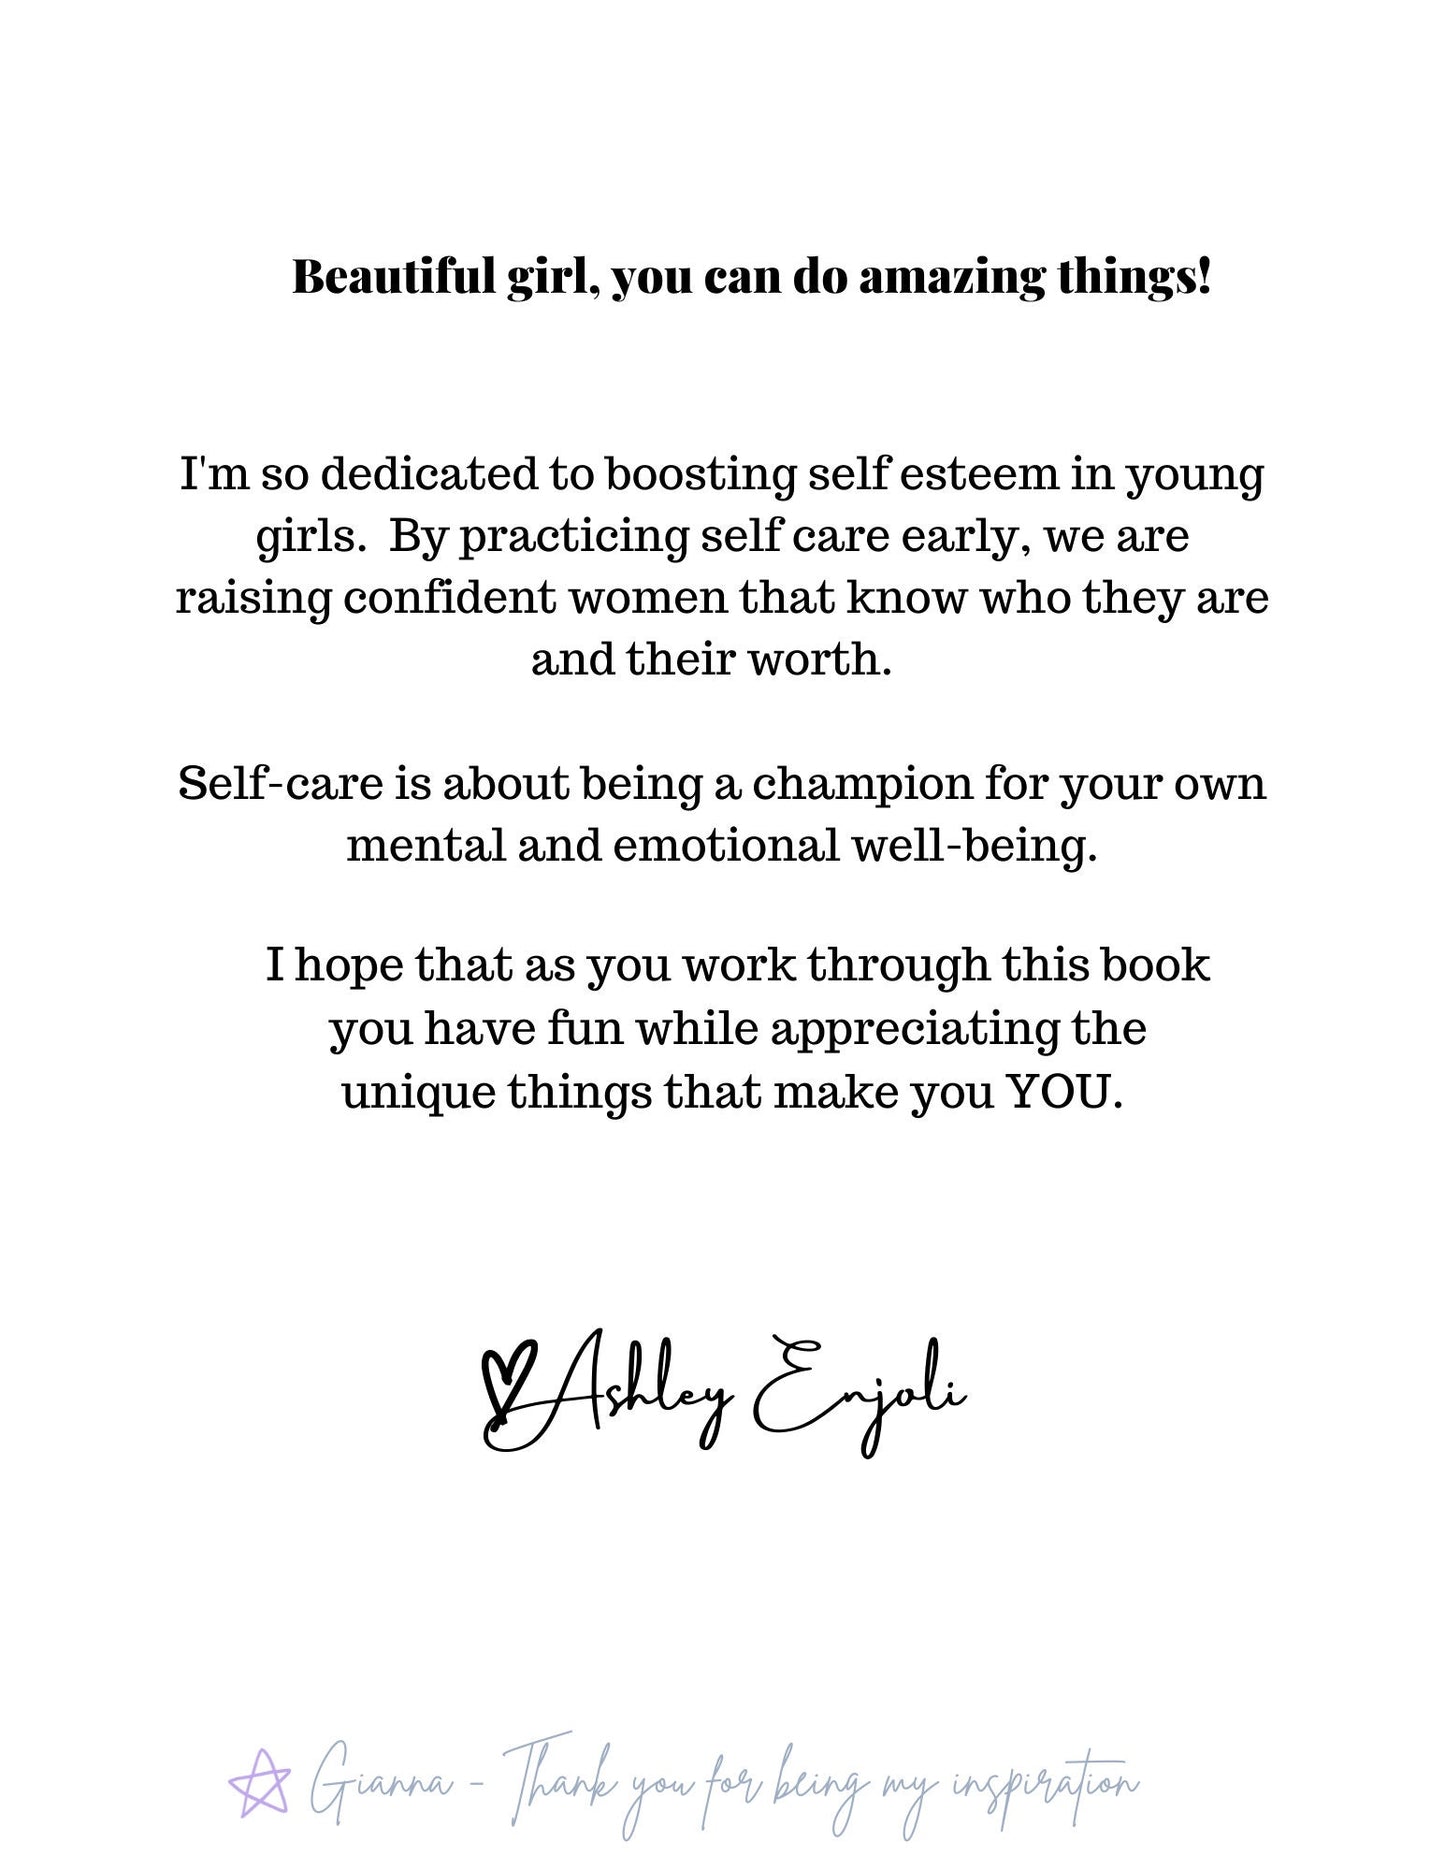 Beautiful girl, you can do amazing things!
I'm so dedicated to boosting self esteem in young
girls.  By practicing self care early, we are
raising confident women that know who they are
and their worth.
Self-care is about being a champion for your own
mental and emotional well-being.
I hope that as you work through this book
you have fun while appreciating the
unique things that make you YOU.
Ashley Enjoli
Gianna - Thank you for being my inspiration